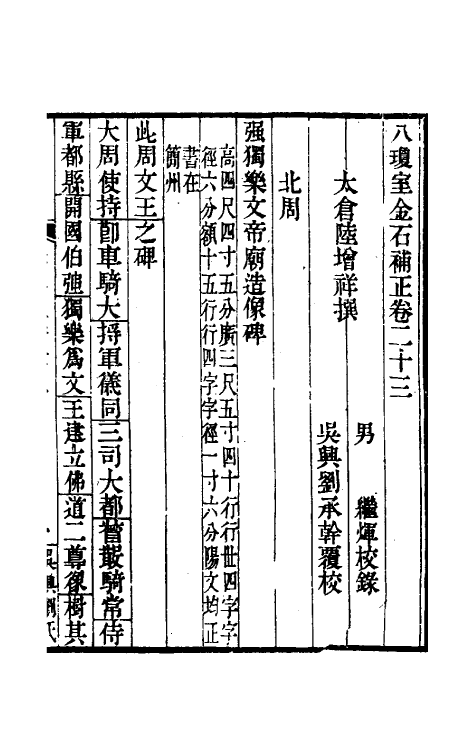 八瓊室金石補正卷二十三
太倉陸增祥撰
男　繼煇校錄
吳興劉承幹覆校
北周
强獨樂文帝廟造像碑
高四尺四寸五分廣三尺五寸四十行行卅四字字
徑六分額十五行行四字字徑一寸六分陽文均正
書在
簡州
此周文王之碑
大周使持節車騎大捋軍儀同三司大都督散騎常侍
軍都縣開國伯强獨樂爲文王建立佛道二尊像樹其
吳興劉氏